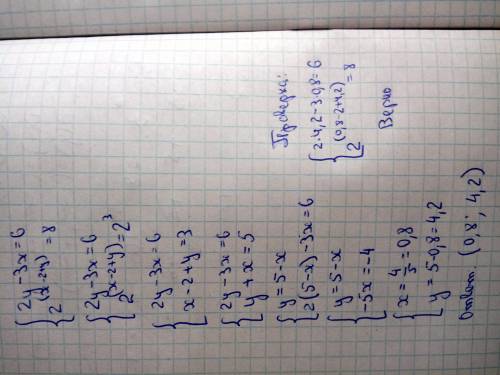 { 2y-3x=6
{ 2^(x-2+y)=8
{ 2y-3x=6
{ 2^(x-2+y)=2^3
{ 2y-3x=6
{ x-2+y=3
{ 2y-3x=6
{ y+x=5
{ y=5-x
{ 2(5-x)-3x=6
{ y=5-x
{ -5x=-4
{ x=4/5=0,8
{ y=5-0,8=4,2
Ответ. (0,8; 4,2)
Проверка:
{ 2·4,2-3·0,8=6
{ 2^(0,8-2+4,2)=8
Верно